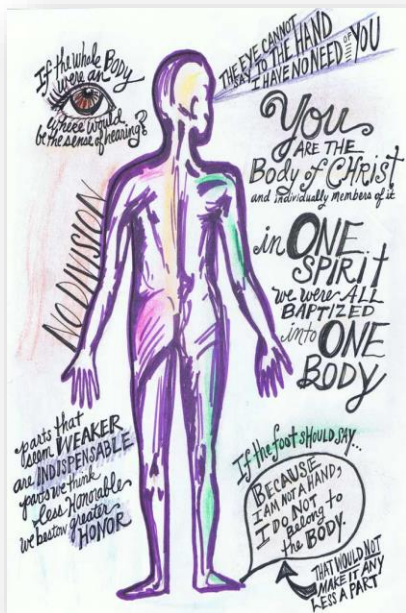 If the whole BODY
were an
where would
be the sense of hearing?
THE EYE CANNOT
SAY TO THE HAND
I HAVE NO NEED of YOU
You
ARE THE
Body of CHRIST
and individually members of it
NO DIVISION
in ONE
SPIRIT
we were ALL
BAPTIZED
into ONE
BODY
parts that
seem WEAKER
are INDISPENSABLE
parts we think
less Honorable
we bestow greater
HONOR
If the foot SHOULD SAY...
BECAUSE
I AM NOT A HAND,
I DO NOT
Belong to
the BODY.
THAT WOULD NOT
MAKE IT ANY
LESS A PART